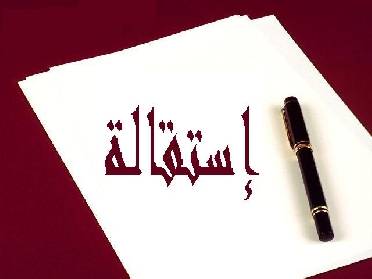 إستقالة